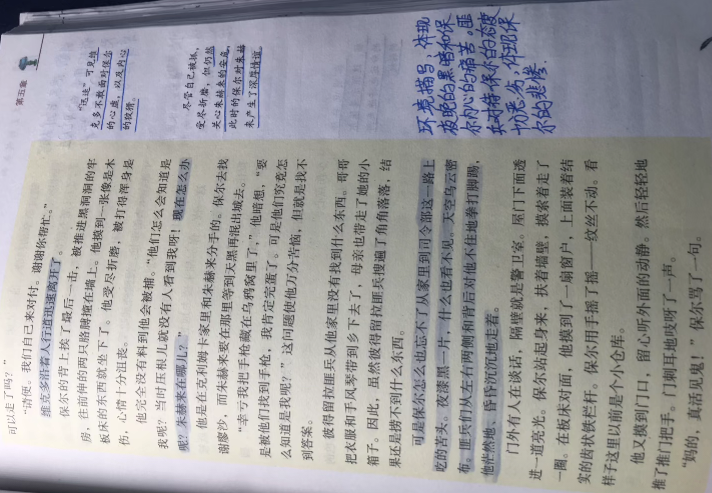 第五章
可以走了吗？”
“请便。我们自己来对付。谢谢你帮忙。”
维克多沿着人行道迅速离开了。
保尔的背上挨了最后一击，被推进黑洞洞的牢
房，往前伸的两只胳膊撞在墙上。他摸到一张像是木
板床的东西就坐下了。他受尽折磨，被打得浑身是
伤，心情十分沮丧。
他完全没有料到他会被捕。“他们怎么会知道是
我呢？当时压根儿就没有人看到我呀！现在怎么办
呢？朱赫来在哪儿？”
他是在克利姆卡家里和朱赫来分手的。保尔去找
谢廖沙，而朱赫来要在那里等到天黑再混出城去。
“幸亏我把手枪藏在乌鸦窝里了，”他暗想，“要
是被他们找到手枪，我肯定完蛋了。可是他们究竟怎
么知道是我呢？”这问题使他万分苦恼，但就是找不
到答案。
彼得留拉匪兵从他家里没有找到什么东西。哥哥
把衣服和手风琴带到乡下去了，母亲也带走了她的小
箱子。因此，虽然彼得留拉匪兵搜遍了角角落落，结
果还是捞不到什么东西。
可是保尔怎么也忘不了从家里到司令部这一路上
吃的苦头。夜漆黑一片，什么也看不见。天空乌云密
布。匪兵们从左右两侧和背后对他不住地拳打脚踢，
他茫然地、昏昏沉沉地走着。
门外有人在谈话，隔壁就是警卫室。屋门下面透
进一道亮光。保尔站起身来，扶着墙壁，摸索着走了
一圈。在板床对面，他摸到了一扇窗户，上面装着结
实的齿状铁栏杆。保尔用手摇了摇——纹丝不动。看
样子这里以前是个小仓库。
他又摸到门口，留心听外面的动静。然后轻轻地
推了推门把手。门刺耳地吱呀了一声。
“妈的，真活见鬼！”保尔骂了一句。
“迅速”可见维
克多不敢面对保尔
的心虚，以及内心
的狡猾。
尽管自己被捕，
受尽折磨，但仍然
关心朱赫来的安危，
此时的保尔对朱赫
来产生了深厚情谊。
环境描写，体现
夜晚的黑暗和保
尔内心的痛苦。匪
兵对待保尔的态度
切恶劣，体现保
尔的悲惨.